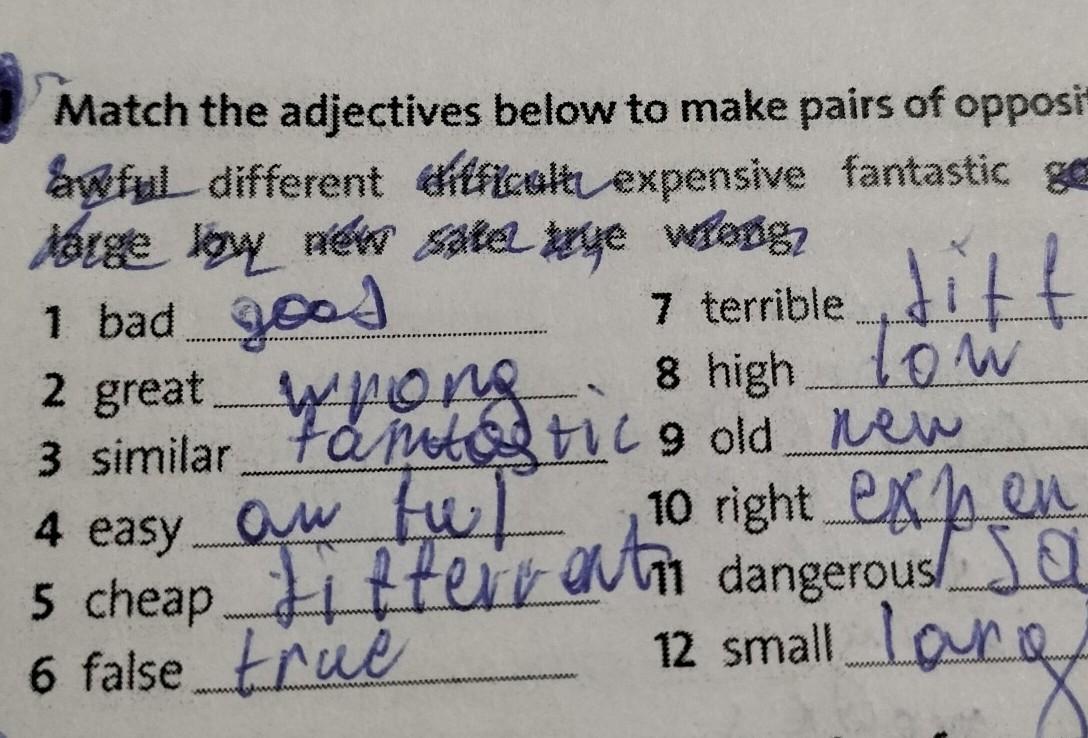 Match the adjectives below to make pairs of opposit
awful different difficult expensive fantastic go
large low new safe true wrong
1 bad good
2 great wrong
3 similar fantastic
4 easy awful
5 cheap differrent
6 false true
7 terrible diff
8 high low
9 old new
10 right expen
11 dangerous sa
12 small larg